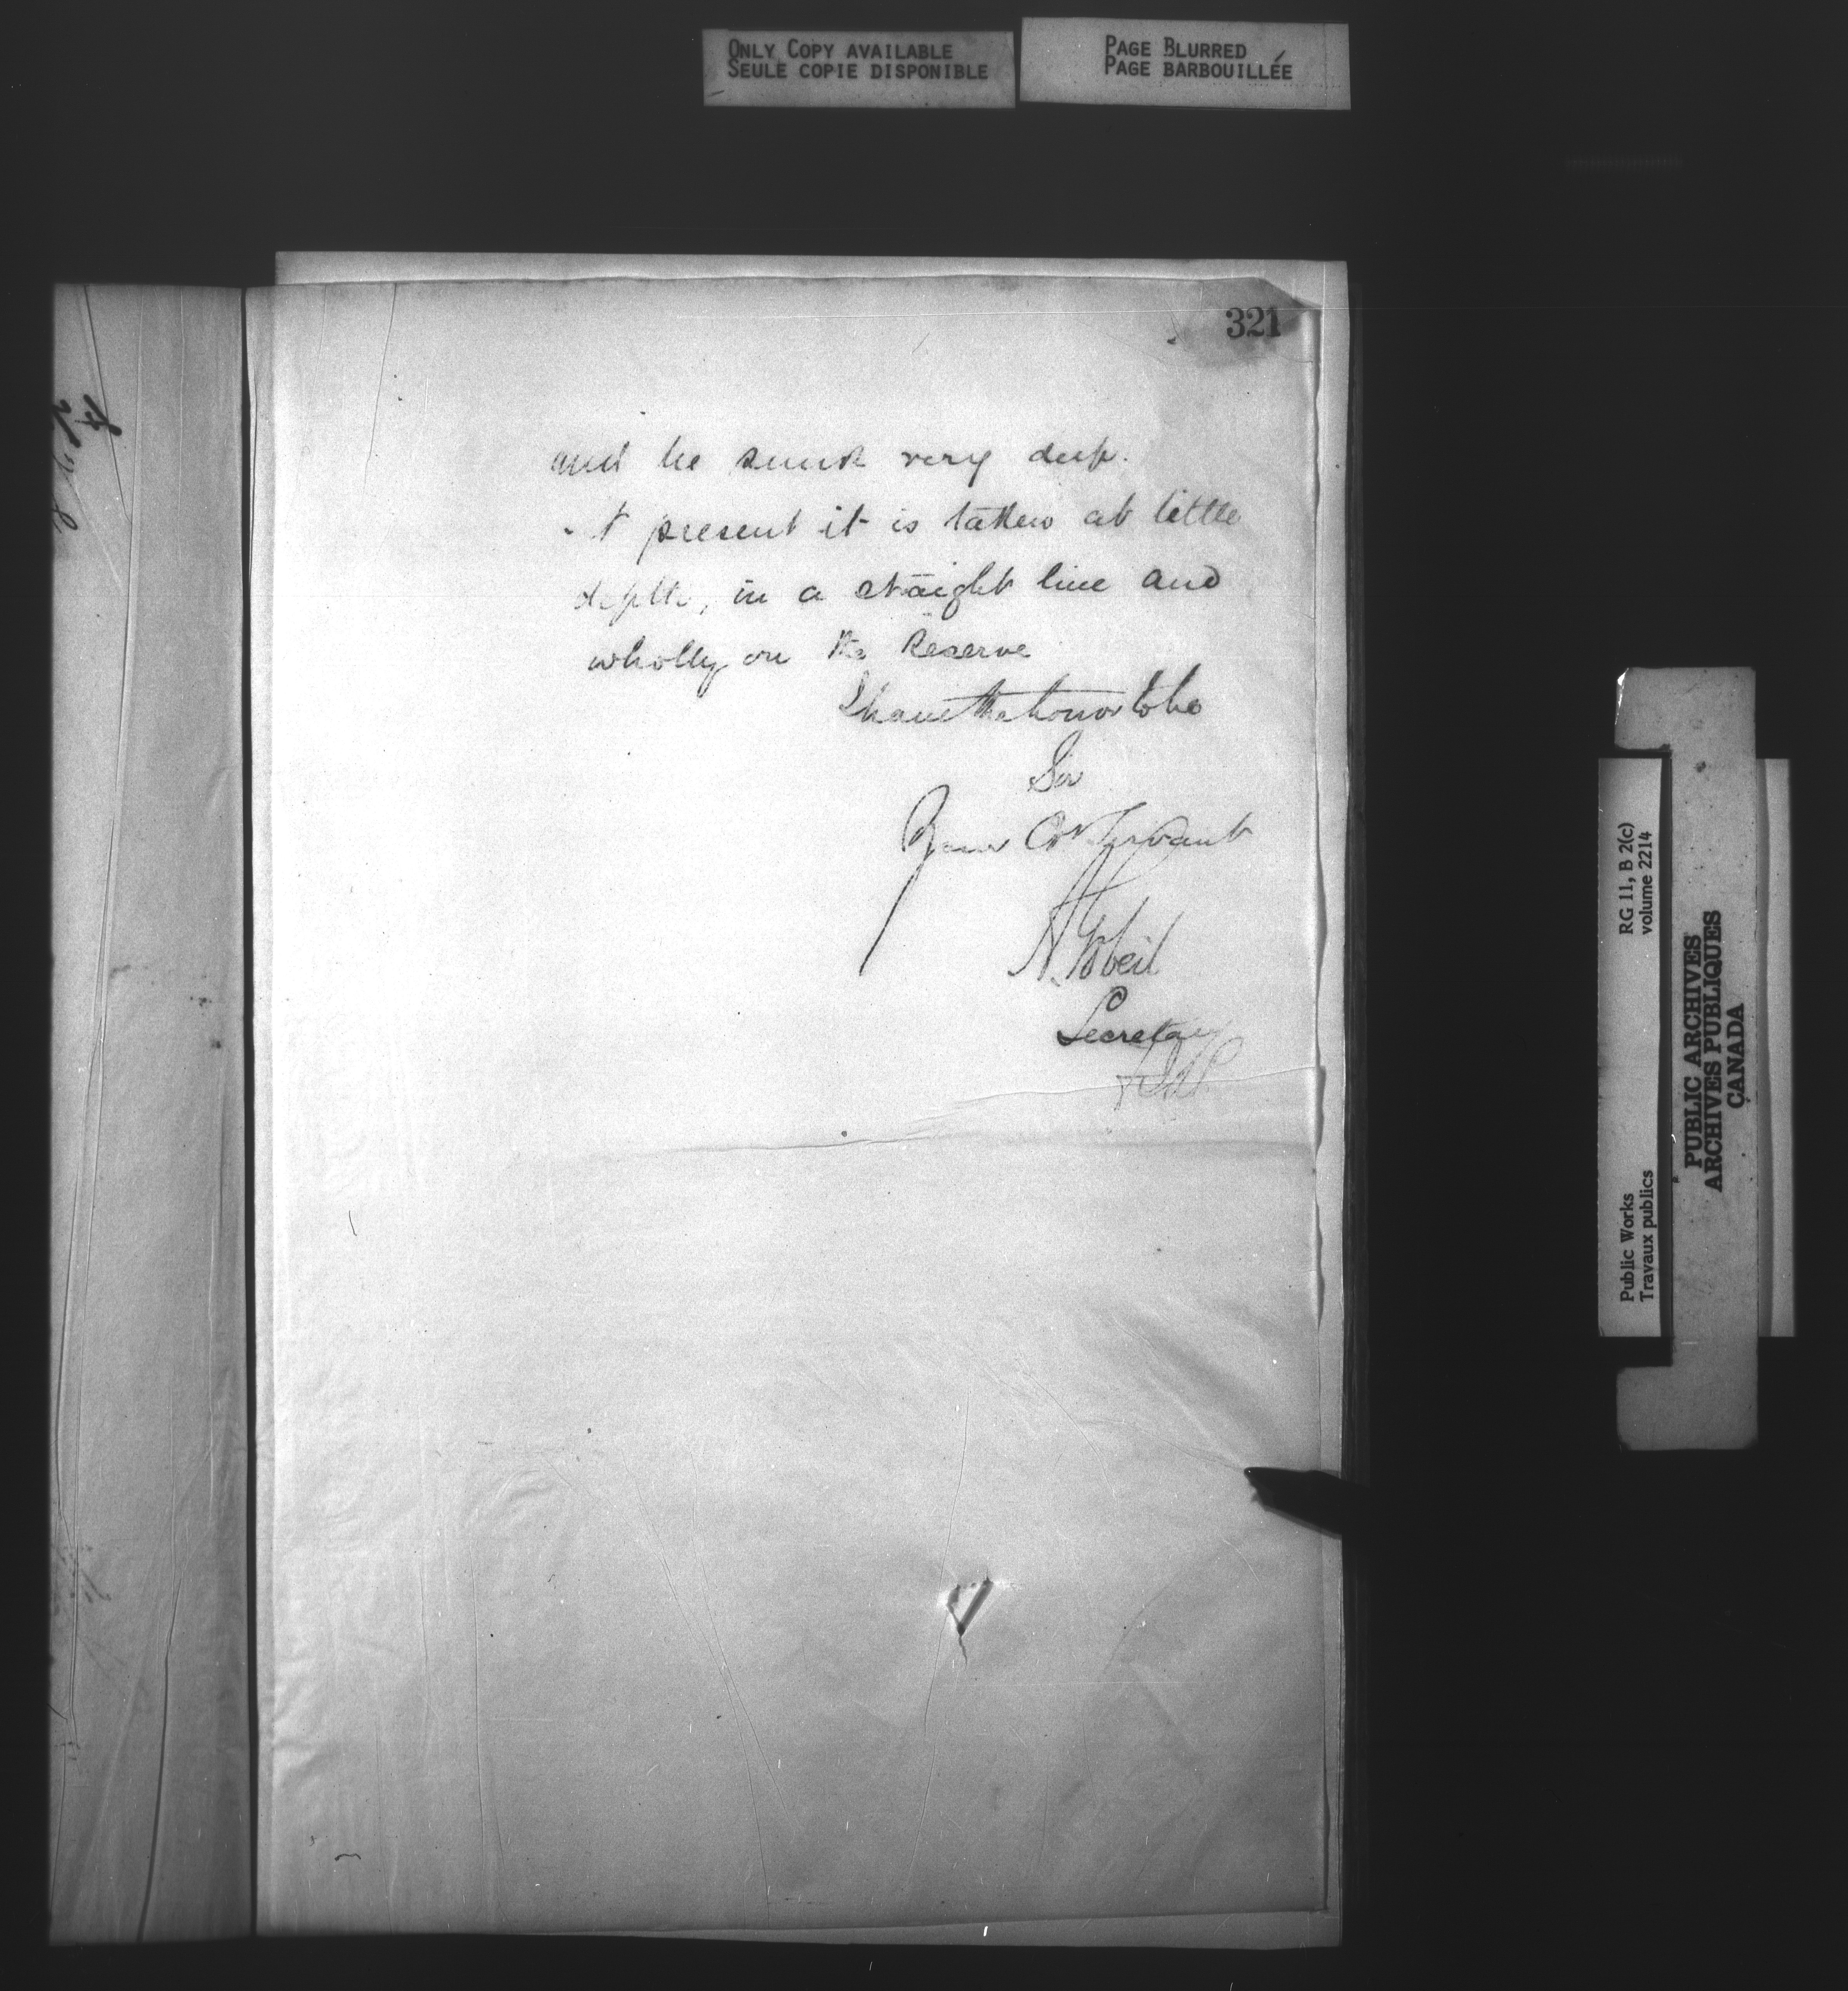 ONLY COPY AVAILABLE
SEULE COPIE DISPONIBLE
PAGE BLURRED
PAGE BARBOUILLÉE
321
and be sunk very deep.
t present it is taken at little
depth, in a straight line and
wholly on the Reserve
I have the honor to be
Sir
Your Obt Servant
A. Gobeil
Secretary
RG 11, B 2(c)
volume 2214
Public Works
Travaux publics
PUBLIC ARCHIVES
ARCHIVES PUBLIQUES
CANADA